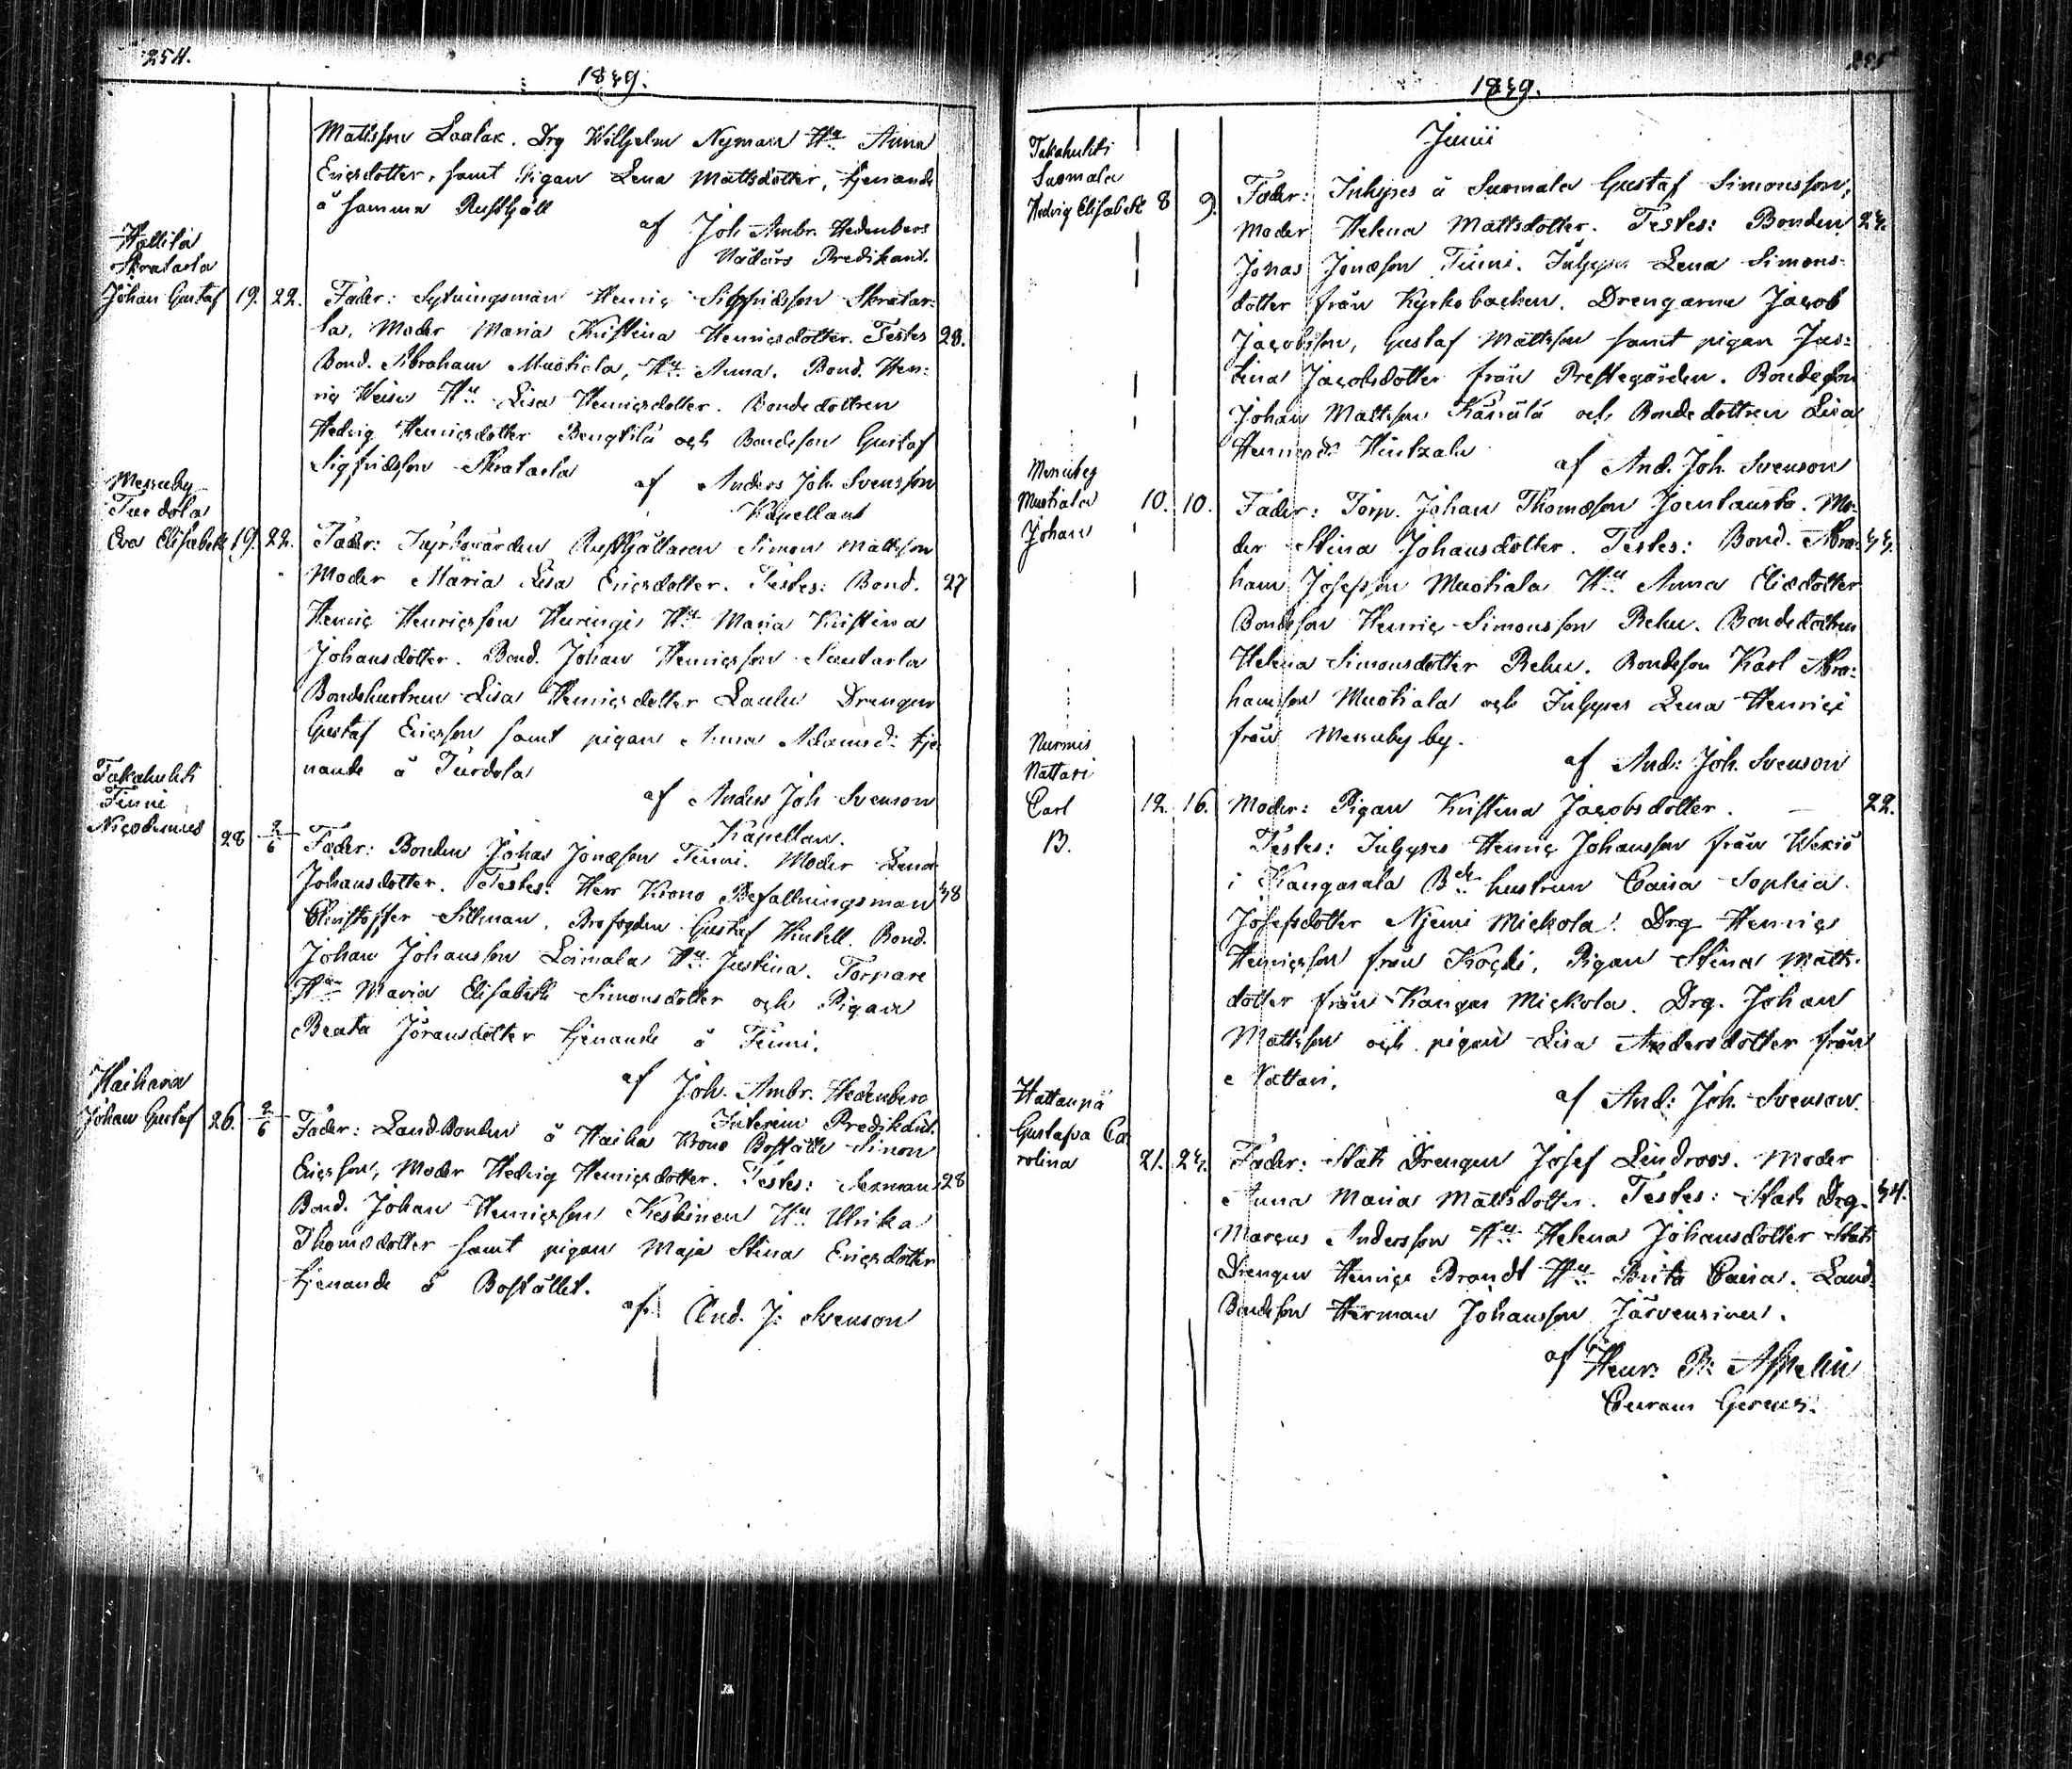 254.
1839.
Mattsson Laalax. Drg Wilhelm Nyman Hu Anna
Ericsdotter, samt Pigan Lena Mattsdotter, tjenande
å samma Rusthåll
af Joh. Ambr. Hedenberg
Nådårs Predikant.
Hallila
Skratarla
Johan Gustaf 19. 22. Fader: Sytningsman Henric Sigfridsson Skratar-
la, Moder Maria Kristina Henricsdotter. Testes 28.
Bond. Abraham Muotiala, Hu Anna. Bond. Hen-
ric Heisu Hu Lisa Henricsdotter. Bondedottren
Hedvig Henricsdotter Bengtilä och Bondeson Gustaf
Sigfridsson Skratarla
af Anders Joh. Svensson
Kapellan
Messuby
Turdola
Eva Elisabeth 19. 22. Fader: Kyrkovärden Rusthållaren Simon Mattsson
Moder Maria Lisa Ericsdotter. Testes: Bond. 27
Henric Henricsson Heiringi Hu Maria Kristina
Johansdotter. Bond. Johan Henricsson Santarla
Bondehustrun Lisa Henricsdotter Laulu Drengen
Gustaf Ericsson samt pigan Anna Adamsd: tje-
nande å Turdola
af Anders Joh. Svenson
Kapellan.
Takahuhti
Finni
Nicodemus 28 2/6 Fader: Bonden Johas Jonæson Finni. Moder Lena
Johansdotter. Testes: Herr Krono Befallningsman 38
Christoffer Sillman, Brofogden Gustaf Hintell. Bond.
Johan Johansson Loimala Hu Justina. Torpare
Hun Maria Elisabeth Simonsdotter och Pigan
Beata Jöransdotter tjenande å Finni.
af Joh. Ambr. Hedenberg
Interim Predikant.
Haihara
Johan Gustaf 26. 2/6 Fader: Land-Bonden å Haiha Krono Boställe Simon
Ericsson, Moder Hedvig Henricsdotter. Testes: Nexman 28
Bond. Johan Henricsson Keskinen Hu Ulrika
Thomædotter samt pigan Maja Stina Ericsdotter
tjenande å Bostället.
af And. J: Svenson
255
1839.
Junii
Takahuhti
Suomala
Hedvig Elisabeth 8 9. Fader: Inhyses å Suomala Gustaf Simonsson,
Moder Helena Mattsdotter. Testes: Bonden 23.
Jonas Jonæson Finni. Inhyses Lena Simons-
dotter från Kyrkobacken. Drengarne Jacob
Jacobsson, Gustaf Mattsson samt pigan Jus-
tina Jacobsdotter från Prestegården. Bondeson
Johan Mattsson Känälä och Bondedottren Lisa
Henricsd: Hintzala
af And. Joh. Svenson
Messuby
Muotiala
Johan 10. 10. Fader: Torp. Johan Thomæson Joentausta. Mo-
der Stina Johansdotter. Testes: Bond. Abra- 33.
ham Josefsson Muotiala Hu Anna Eliedotter
Bondeson Henric Simonsson Rehu. Bondedottren
Helena Simonsdotter Rehu. Bondeson Karl Abra-
hamsson Muotiala och Inhyses Lena Henrici
från Messuby by.
af And: Joh. Svenson
Nurmis
Nattari
Carl
B. 12. 16. Moder: Pigan Kristina Jacobsdotter. 22.
Testes: Inhyses Henric Johansson från Wexiö
i Kangasala Bde hustrun Caisa Sophia
Josefsdotter Njemi Mickola. Drg Henric
Henricsson från Kocki, Pigan Stina Matts-
dotter från Kangas Mickola. Drg. Johan
Mattsson och pigan Lisa Andersdotter från
Nattari.
af And: Joh. Svenson.
Hattanpä
Gustafva Ca-
rolina 21. 23. Fader: Stats Drengen Josef Lindroos. Moder
Anna Maria Mattsdotter. Testes: Stats Drg. 34.
Marcus Andersson Hu Helena Johansdotter Stats
Drengen Henric Brandt Hu Brita Caisa. Land-
Bondeson Herman Johansson Järvensivu.
af Henr. Pr: Asphelin
Curam Gerens.